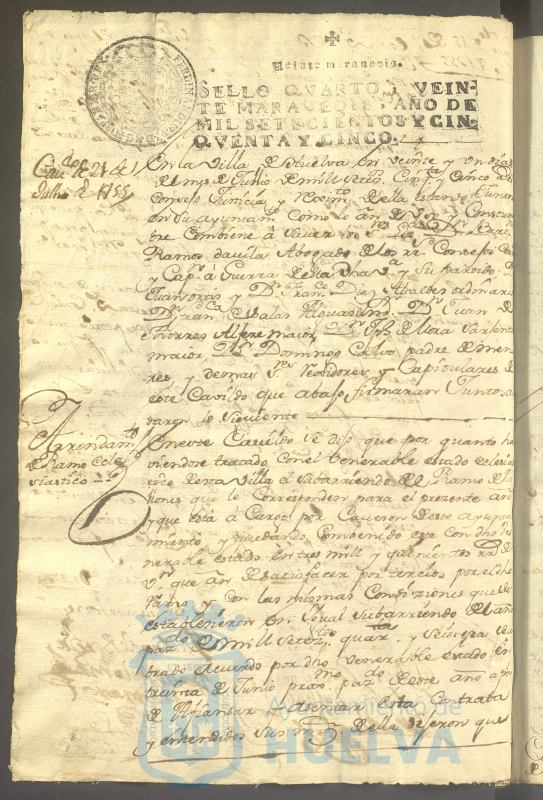 Veinte maravedis.
SELLO QVARTO, VEIN-
TE MARAVEDIS, AÑO DE
MIL SETECIENTOS Y CIN-
QVENTA Y CINCO.
Cav.do de 21 de
Julio de 1755
En la Villa de Huelva en veinte y un dias
del mes de Julio de mill setez.s Cinq.ta y Cinco el
Consejo Justicia y Reximi.to della estando Juntos
en su ayuntam.to como lo an de Uso y Costum
bre Combiene à saver los S.res
Ramos davila Abogado de los R.s Consejos
y Cap.n à Guerra desta dha V.a y Su partido
Juan y D.n Fran.co Diaz Alcaldes ordinarios
D.n Fran.co de Salas Alguasil D.n Juan de
Thorres Alferes maior, D.n de Mora
maior, D.n Domingo Calvo, padre de meno
res y demas S.res Rexidores y Capitulares de
este Cavildo que abajo firmaran Juntos
lo siguiente
Arrendam.to
del Ramo ecle
siastico
En este Cavildo Se dijo que por quanto ha
viendose tratado con el Venerable estado eclesias
tico desta Villa el subarriendo del Ramo de
que le Corresponden para el presente año
y que està à Cargo por de este ayunta
miento, y quedando Combenido esa con dho ve
nerable estado en tres mill y quinientos r.s de
v.n que an de satisfacer por tercios por el dho
ramo, y con las mismas Condiziones que se
establecieron en igual subarriendo del año
pas.do de mill setez.tos quar.ta y
trado Acuerdo por dho venerable estado en
treinta de Junio pas.do de este año a fin
de Afiansar esta Contrata
y entendidos Sus della dijeron que
Ayuntamiento de
HUELVA